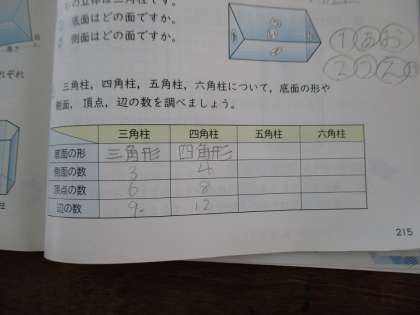 の立体は三角柱です。
底面はどの面ですか。
側面はどの面ですか。
① あ お
② ① え
三角柱，四角柱，五角柱，六角柱について，底面の形や
側面，頂点，辺の数を調べましょう。
三角柱 四角柱 五角柱 六角柱
底面の形 三角形 四角形
側面の数 3 4
頂点の数 6 8
辺の数 9 12
215